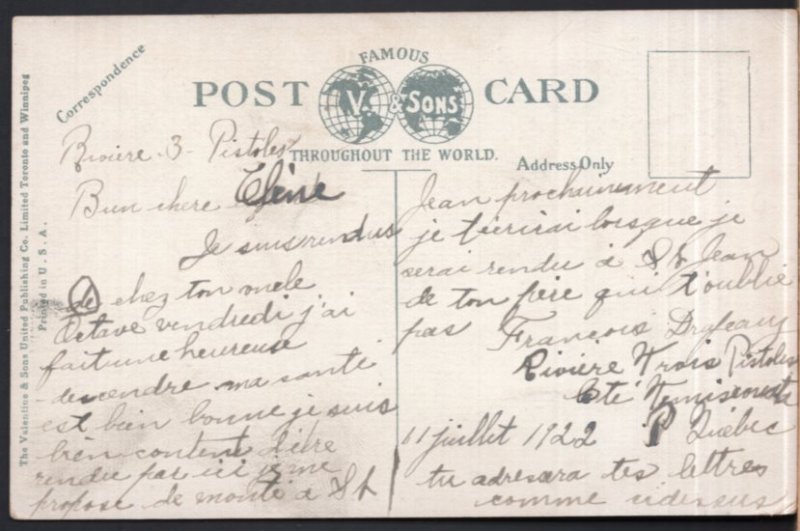 The Valentine & Sons United Publishing Co. Limited Toronto and Winnipeg
Printed in U. S. A.
Correspondence
FAMOUS
POST V. & SONS CARD
THROUGHOUT THE WORLD.
Address Only
Rivière 3 Pistoles
Bien chere Elène
Je suis rendus
de chez ton
Octave vendredi j'ai
fait une heureuse
dessendre ma santé
est bien bonne je suis
bien content d'être
rendu par ici je me
propose de monté à St
Jean prochainement
je técrirai lorsque je
serai rendu à St Jean
de ton père qui t'oublie
pas
François Drapeau
Rivière Trois Pistoles
Cté Temiscouata
11 juillet 1922 P Québec
tu adresera tes lettres
comme cidessus